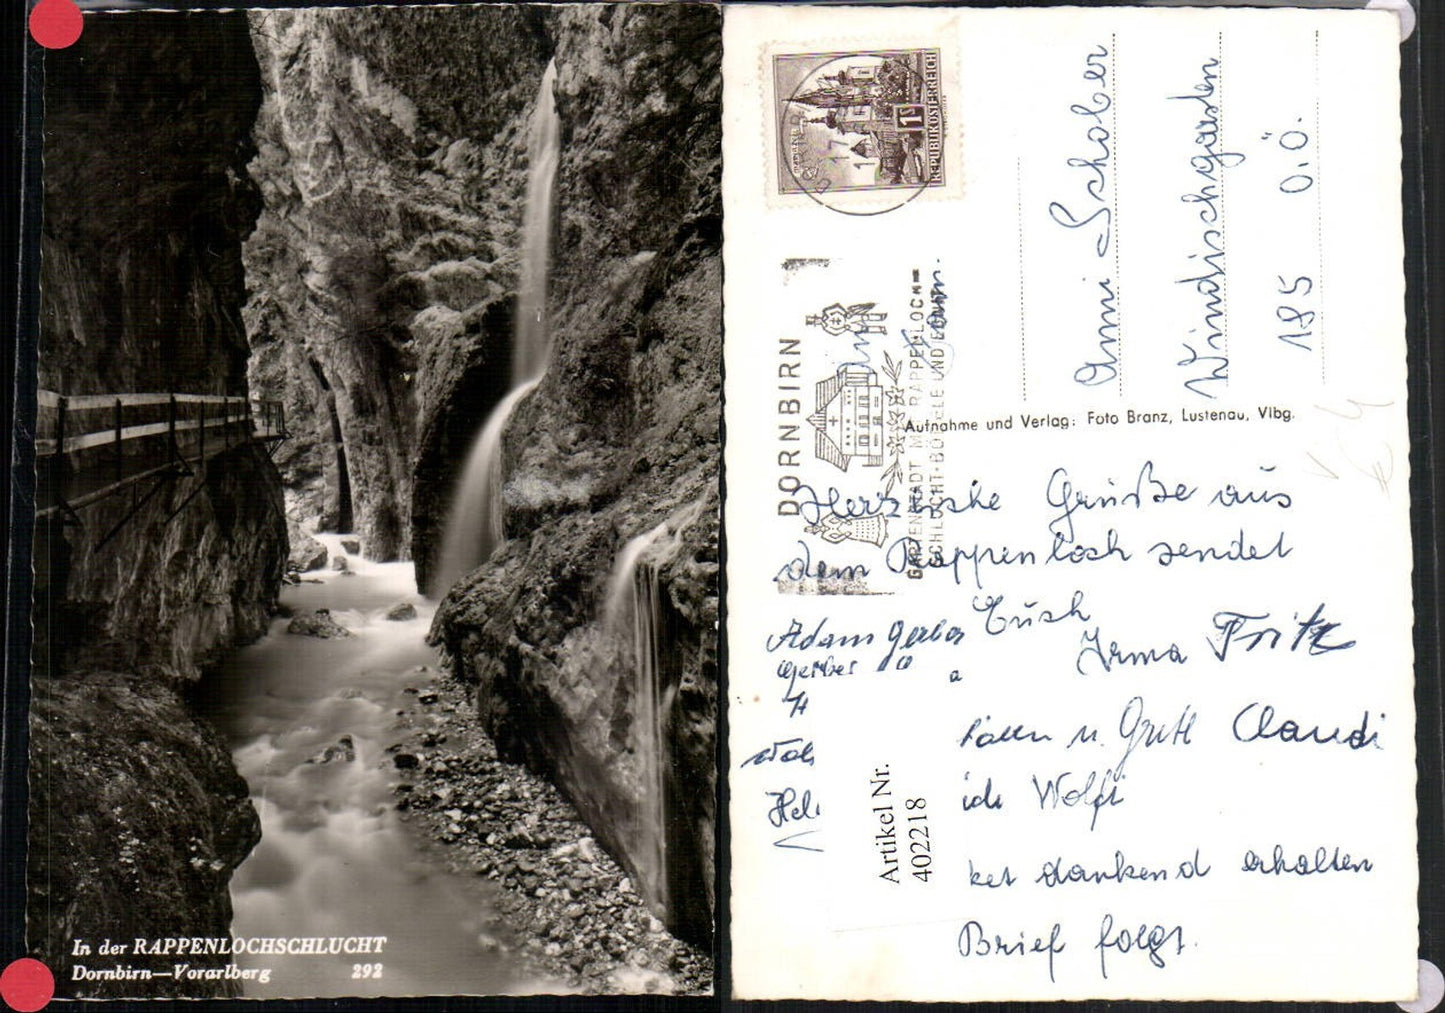 In der RAPPENLOCHSCHLUCHT
Dornbirn—Vorarlberg 292
REPUBLIK ÖSTERREICH
1 S
DORNBIRN
GARTENSTADT MIT RAPPENLOCH-
SCHLUCHT-BÖDELE UND
Anni Schober
Windischgarsten
185 O.Ö.
Aufnahme und Verlag: Foto Branz, Lustenau, Vlbg.
Herzliche Grüße aus
dem Rappenloch sendet
Euch
Irma Fritz
Adam Gerber
Gerber
u. Gretl Claudi
Wolfi
dankend erhalten
Brief folgt.
Artikel Nr.
402218